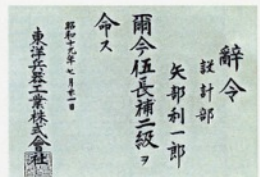 辭令
設計部
矢部利一郎
爾今伍長補二級ヲ
命ス
昭和十九年七月廿一日
東洋兵器工業株式會社